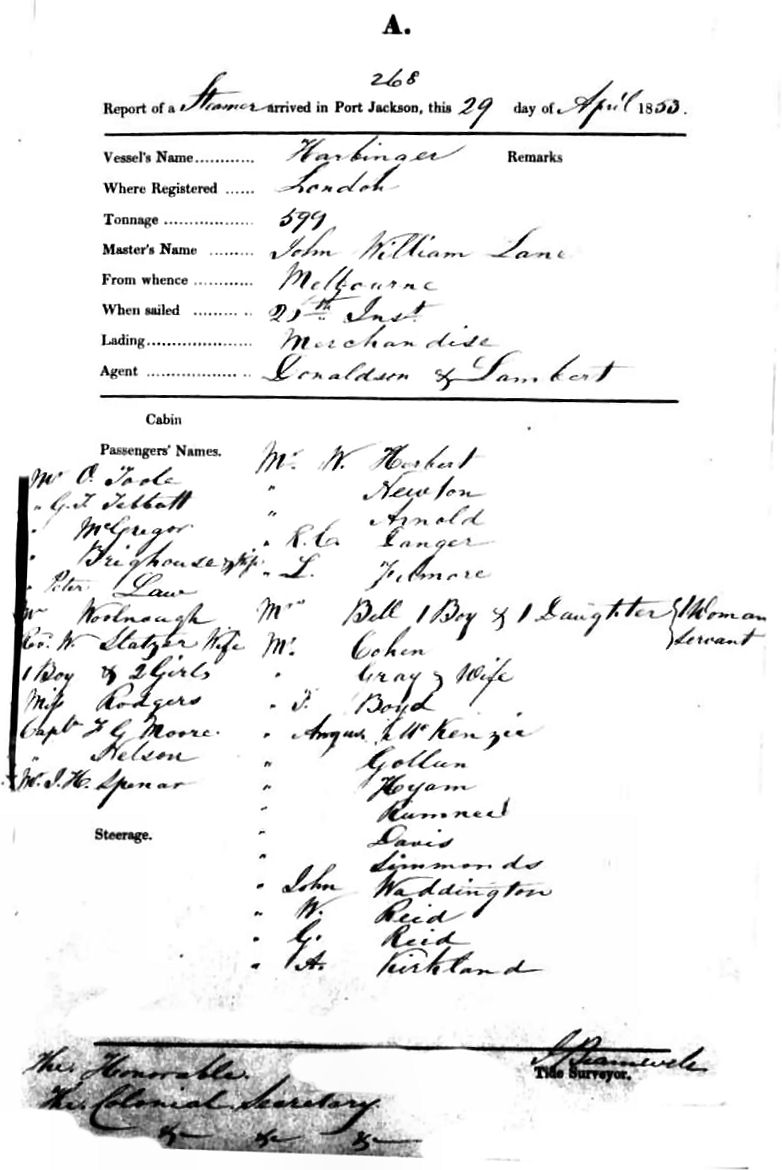 A.
268
Report of a Steamer arrived in Port Jackson, this 29 day of April 1853.
Vessel's Name............ Harbinger Remarks
Where Registered ...... London
Tonnage .................. 599
Master's Name ......... John William Lane
From whence ............ Melbourne
When sailed ......... .. th Inst
Lading..................... Merchandise
Agent .................. .. Donaldson & Lambert
Cabin
Passengers' Names.
Mr O. Toole
" G. F. Tebbutt
" McGregor
" Brighouse & Wife
" Peter Law
Mr Woolnough
Rev. W. Wife
1 Boy & 2 Girls
Miss Rodgers
Capt F G Moore
" Nelson
Mr. J. H. Spenar
Mr. W. Herbert
" Newton
" Arnold
" R. C. Danger
" L. Filmore
Mrs Bell 1 Boy & 1 Daughter } 1 Woman
Servant
Mr. Cohen
" Gray & Wife
" F. Boyd
" Angus McKenzie
" Gollun
" Hyam
" Davis
" Simmonds
" John Waddington
" W. Reid
" G. Reid
" A. Kirkland
Steerage.
Tide Surveyor.
The Honorable
The Colonial Secretary
&c &c &c